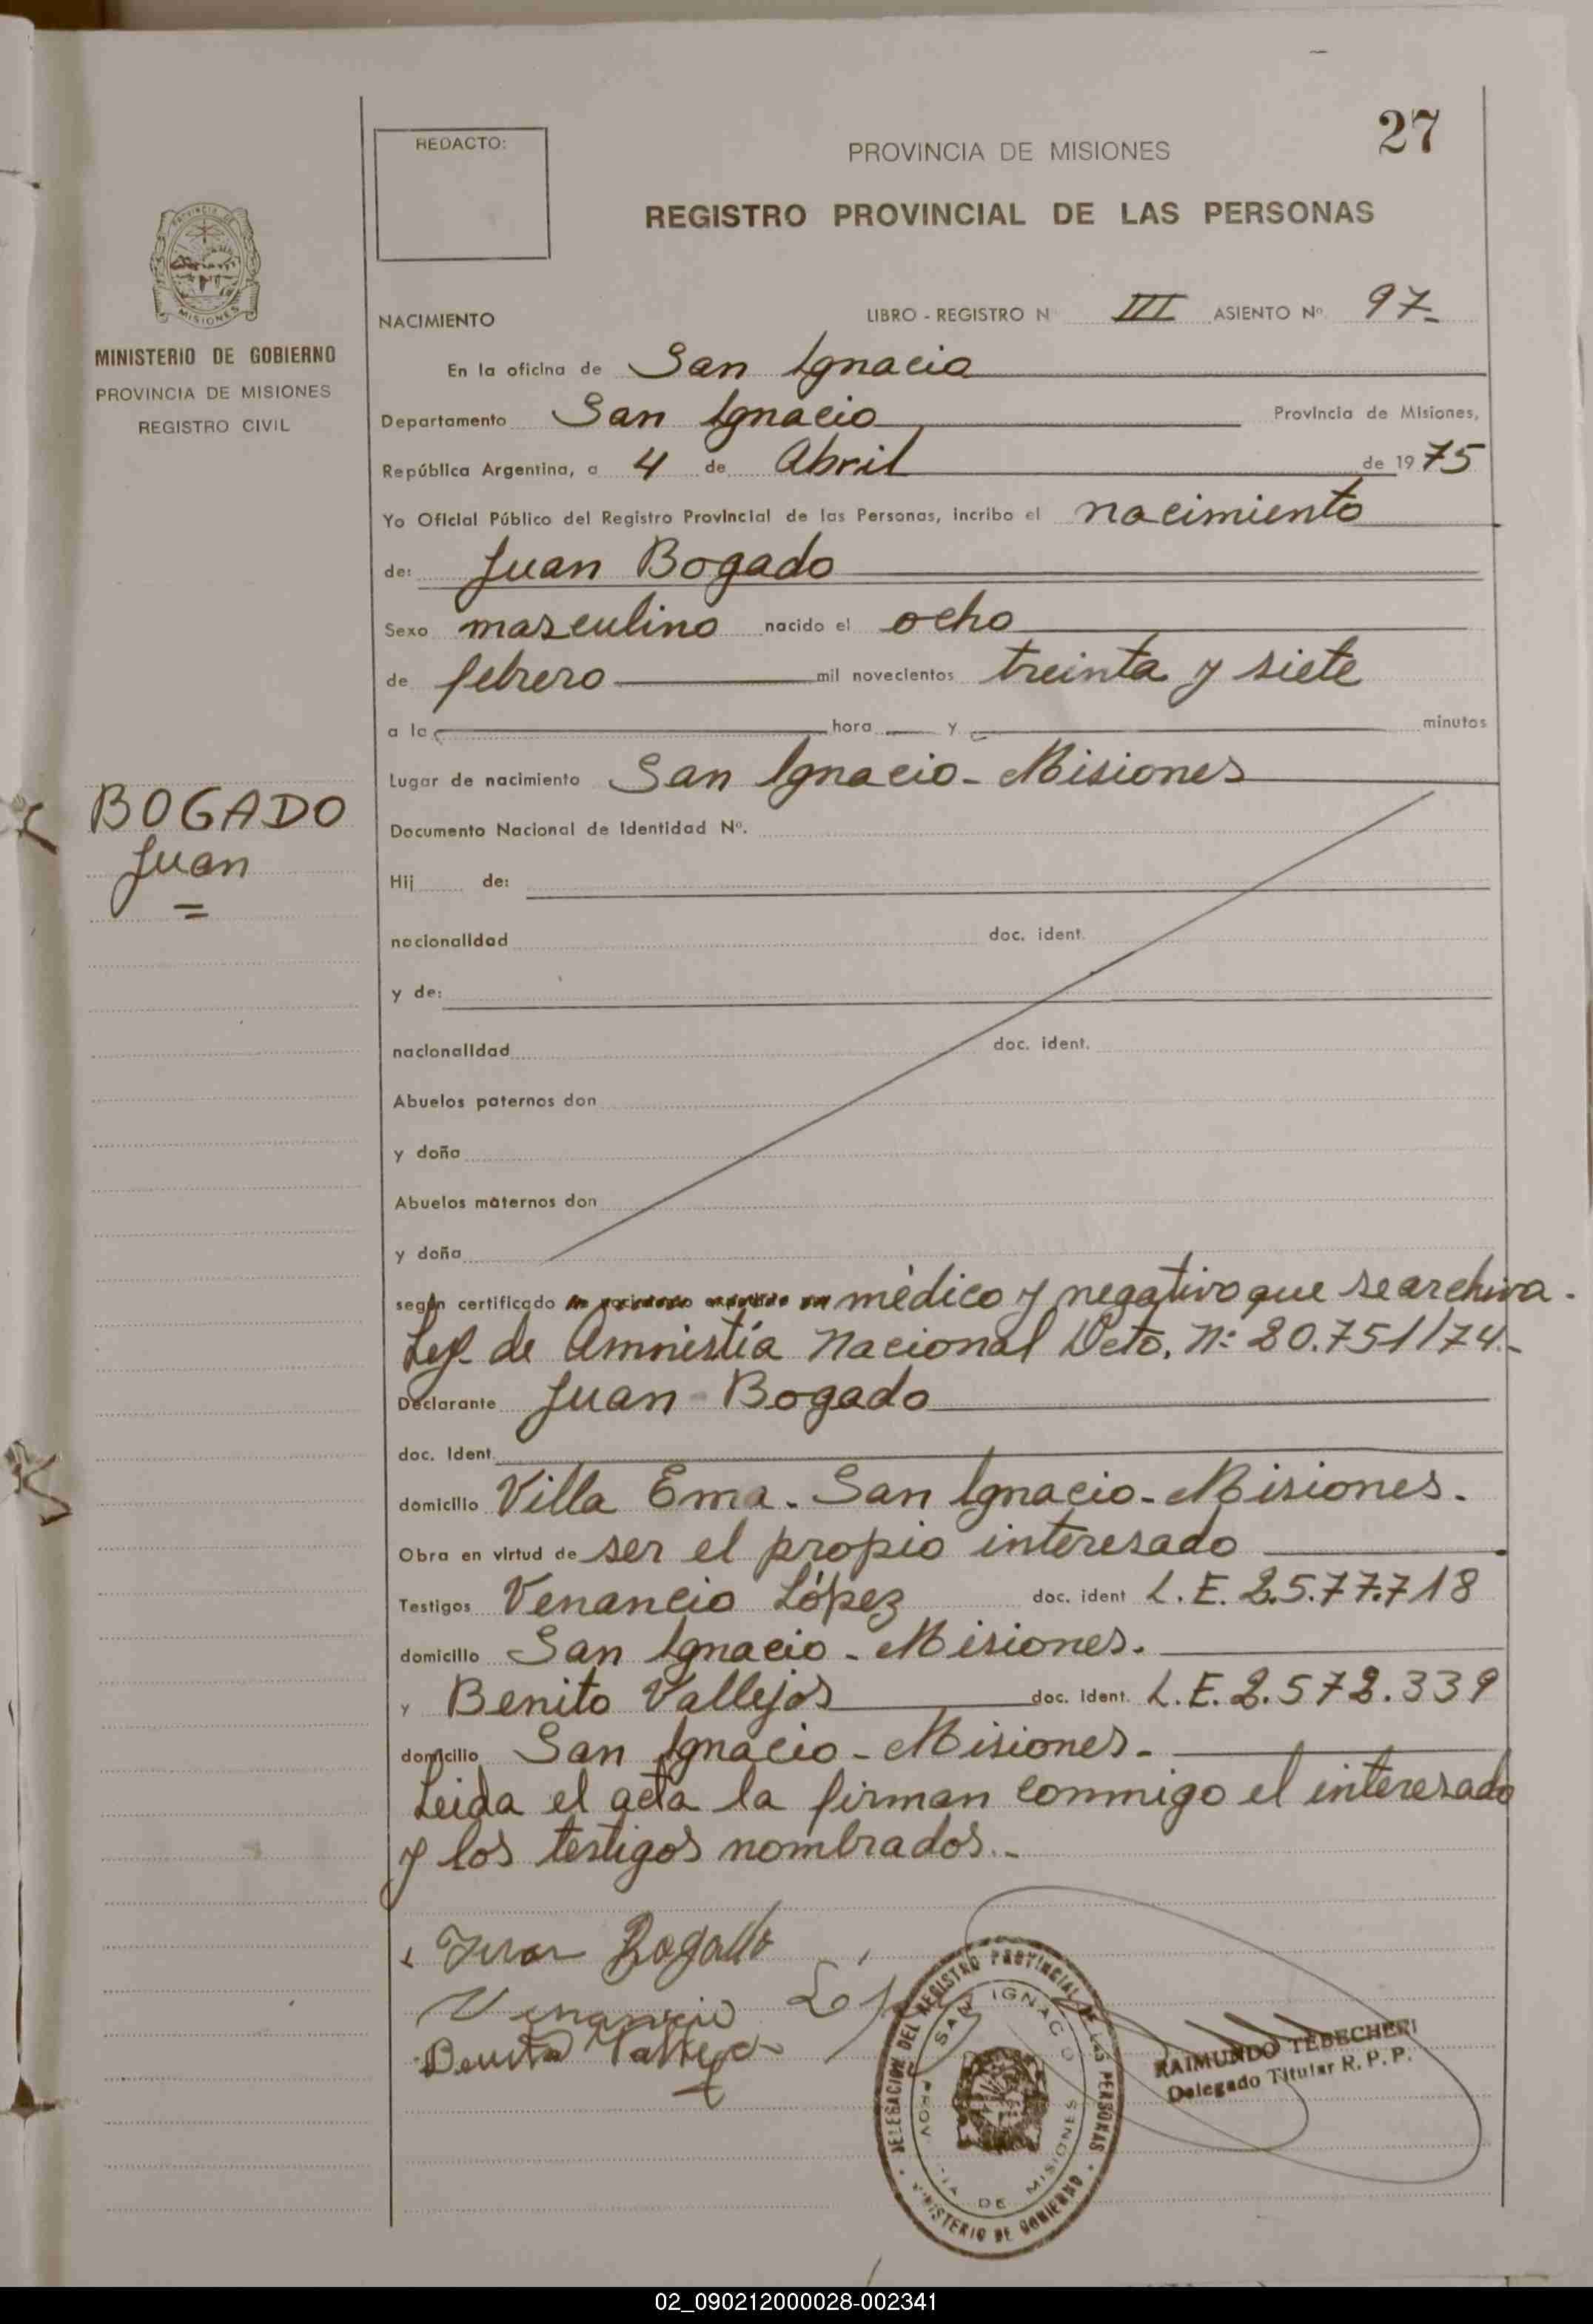 27
REDACTO:
PROVINCIA DE MISIONES
REGISTRO PROVINCIAL DE LAS PERSONAS
MISIONES
MINISTERIO DE GOBIERNO
PROVINCIA DE MISIONES
REGISTRO CIVIL
NACIMIENTO LIBRO - REGISTRO N III ASIENTO Nº 97-
En la oficina de San Ignacio
Departamento San Ignacio Provincia de Misiones,
República Argentina, a 4 de Abril de 1975
Yo Oficial Público del Registro Provincial de las Personas, incribo el nacimiento
de: Juan Bogado
Sexo masculino nacido el ocho
de febrero mil novecientos treinta y siete
a la hora y minutos
Lugar de nacimiento San Ignacio - Misiones
BOGADO
Juan
Documento Nacional de Identidad Nº.
Hij de:
nacionalidad doc. ident.
y de:
nacionalidad doc. ident.
Abuelos paternos don
y doña
Abuelos maternos don
y doña
según certificado médico y negativo que se archiva.
Ley de Amnistía Nacional Dcto. Nº 20.751/74.-
Declarante Juan Bogado
doc. Ident.
domicilio Villa Ema - San Ignacio - Misiones.
Obra en virtud de ser el propio interesado
Testigos Venancio López doc. ident L.E. 2.577.718
domicilio San Ignacio - Misiones.
y Benito Vallejos doc. ident. L.E. 2.572.339
domicilio San Ignacio - Misiones -
Leida el acta la firman conmigo el interesado
y los testigos nombrados.-
Juan Bogado
Venancio López
Benito Vallejo
DELEGACION DEL REGISTRO PROVINCIAL DE LAS PERSONAS
SAN IGNACIO
PROVINCIA DE MISIONES
MINISTERIO DE GOBIERNO
RAIMUNDO TEBECHERI
Delegado Titular R. P. P.
02_090212000028-002341